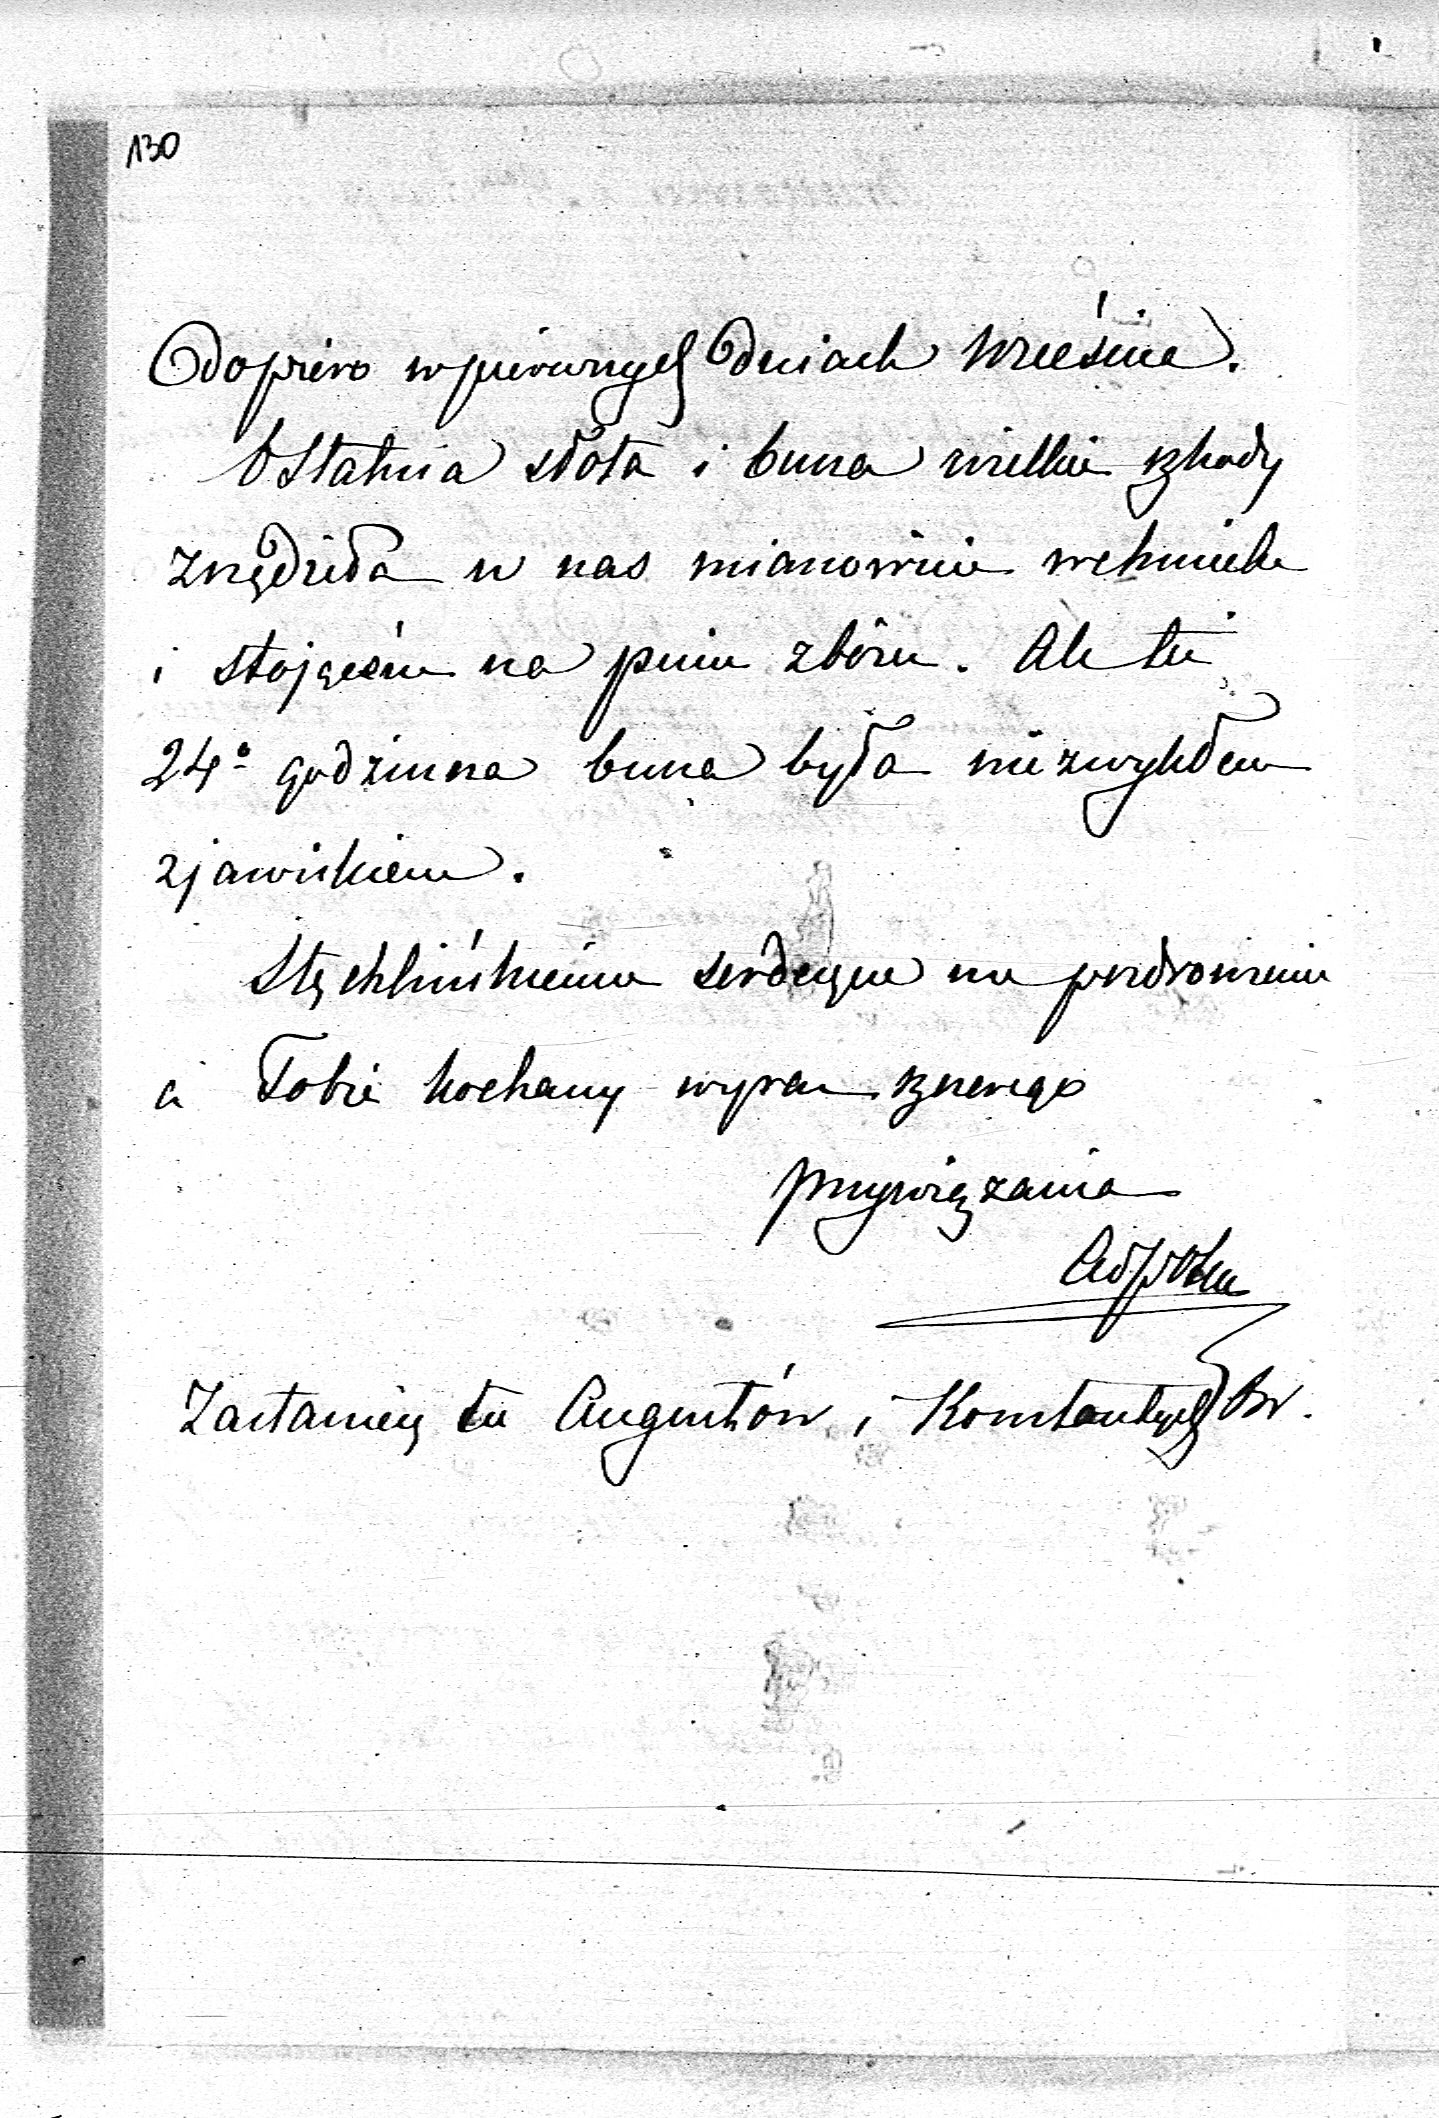 130
dopiero w pierwszych dniach Września.
Ostatnia słota i burza wielkie szkody
zrzędziła u nas mianowicie w chmielu
i stojącém na pniu zbożu. Ale też
24o godzinna burza była niezwykłem
zjawiskiem.
Stęchlińskiemu serdeczne me pozdrowienie
a Tobie kochany wyraz szczerego
przywiązania
Zastaniesz tu Augustów i Konstantych Br.